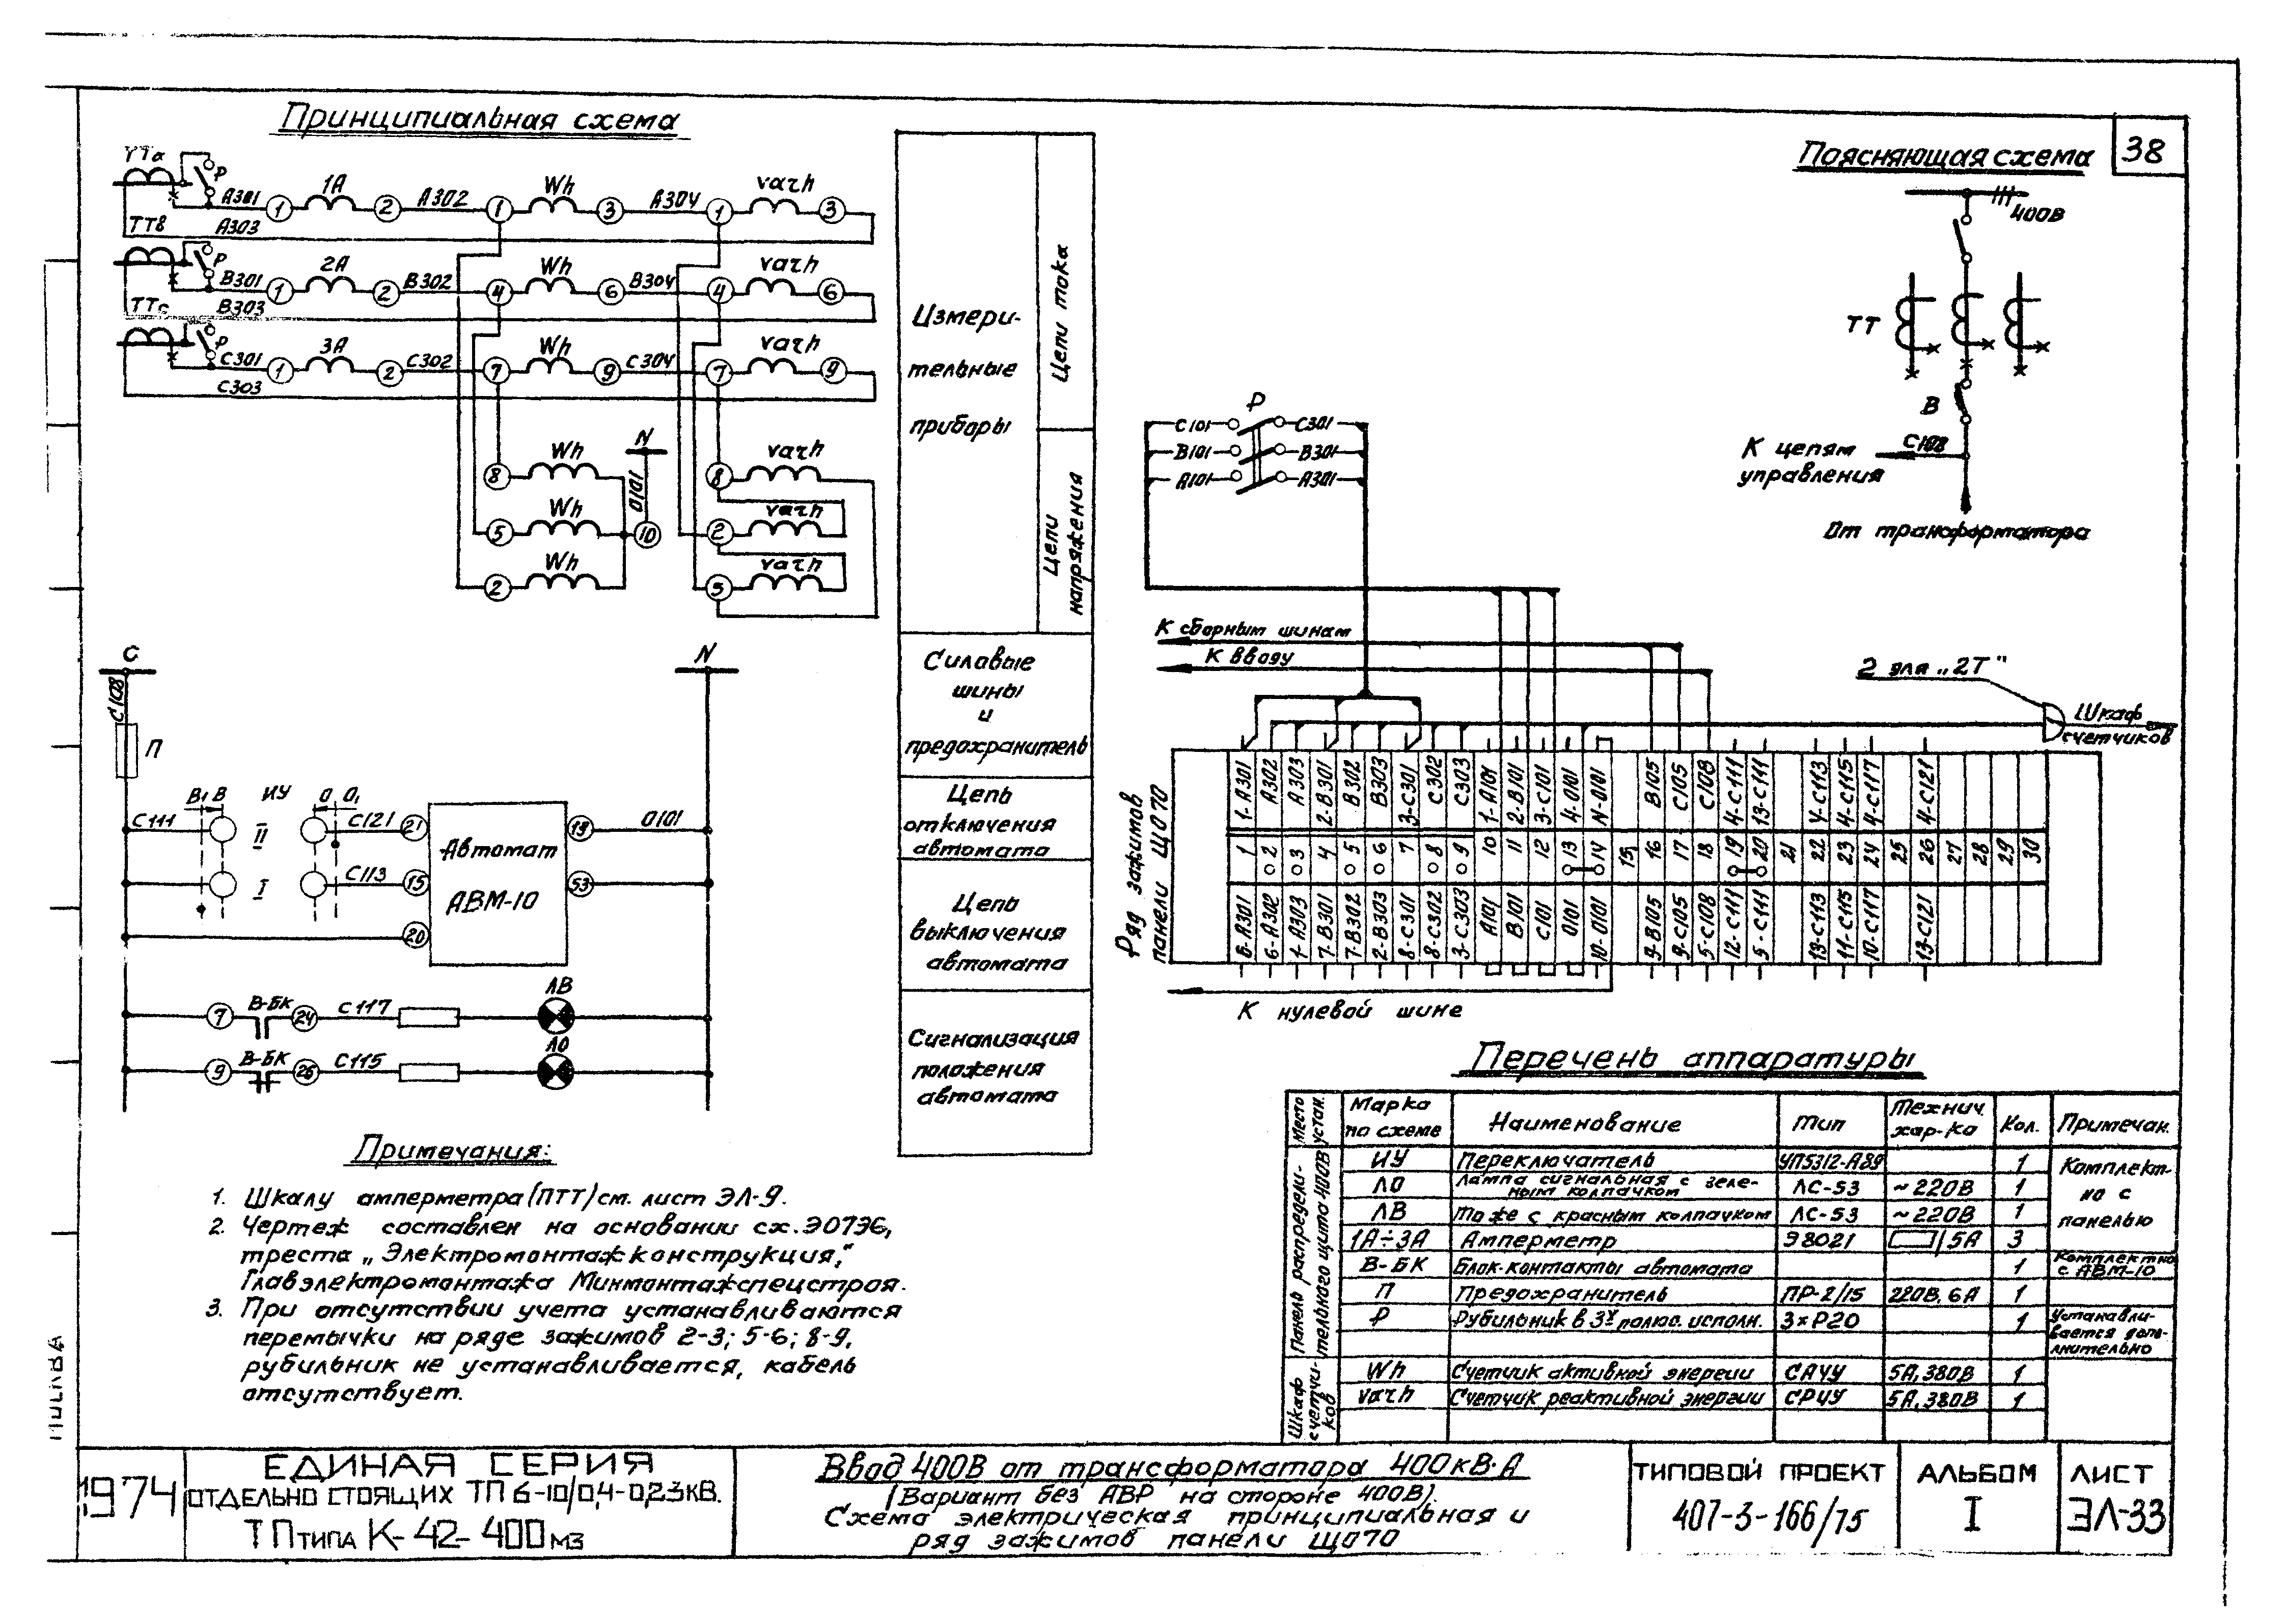 38
Принципиальная схема
ТТа
Р
А301
1
1А
2
А302
1
Wh
3
А304
1
varh
3
А303
ТТв
Р
В301
1
2А
2
В302
4
Wh
6
В304
4
varh
6
В303
ТТс
Р
С301
1
3А
2
С302
7
Wh
9
С304
7
varh
9
С303
8
Wh
N
0101
8
varh
5
Wh
10
2
varh
2
Wh
5
varh
С
N
С108
П
В1 В
ИУ
0 01
С111
II
С121
21
19
0101
Автомат
АВМ-10
I
С113
15
53
20
7
В-БК
24
С117
ЛВ
9
В-БК
26
С115
ЛО
Измери-
тельные
приборы
Цепи тока
Цепи
напряжения
Силовые
шины
и
предохранитель
Цепь
отключения
автомата
Цепь
выключения
автомата
Сигнализация
положения
автомата
Поясняющая схема
400В
ТТ
В
С108
К цепям
управления
От трансформатора
Р
С101
С301
В101
В301
А101
А301
К сборным шинам
К вводу
2 для „2Т"
Шкаф
счетчиков
Ряд зажимов
панели ЩО70
1-А301
А302
А303
2-В301
В302
В303
3-С301
С302
С303
1-А101
2-В101
3-С101
4-0101
N-0101
В105
С105
С108
4-С111
13-С111
4-С113
4-С115
4-С117
4-С121
1 2 3 4 5 6 7 8 9 10 11 12 13 14 15 16 17 18 19 20 21 22 23 24 25 26 27 28 29 30
6-А301
6-А302
1-А303
7-В301
7-В302
2-В303
8-С301
8-С302
3-С303
А101
В101
С101
0101
10-0101
9-В105
9-С105
5-С108
12-С111
5-С111
13-С113
11-С115
10-С117
13-С121
К нулевой шине
Примечания:
1. Шкалу амперметра (ПТТ) см. лист ЭЛ-9.
2. Чертеж составлен на основании сх. Э0736,
треста „Электромонтажконструкция,"
Главэлектромонтажа Минмонтажспецстроя.
3. При отсутствии учета устанавливаются
перемычки на ряде зажимов 2-3; 5-6; 8-9,
рубильник не устанавливается, кабель
отсутствует.
Перечень аппаратуры
Место устан.
Марка по схеме
Наименование
Тип
Технич. хар-ка
Кол.
Примечан.
Панель распредели-
тельного щита 400В
ИУ Переключатель УП5312-А89 1
ЛО Лампа сигнальная с зеле-
ным колпачком ЛС-53 ~220В 1
ЛВ То же с красным колпачком ЛС-53 ~220В 1
1А÷3А Амперметр Э8021 /5А 3
Комплект-
но с
панелью
В-БК Блок-контакты автомата 1 Комплектно
с АВМ-10
П Предохранитель ПР-2/15 220В, 6А 1
Р Рубильник в 3х полюс. исполн. 3×Р20 1 Устанавли-
вается допо-
лнительно
Шкаф
счетчи-
ков
Wh Счетчик активной энергии САЧУ 5А, 380В 1
varh Счетчик реактивной энергии СРЧУ 5А, 380В 1
1974
ЕДИНАЯ СЕРИЯ
ОТДЕЛЬНО СТОЯЩИХ ТП 6-10/0,4-0,23КВ.
ТП ТИПА К-42-400М3
Ввод 400В от трансформатора 400кВ·А
(Вариант без АВР на стороне 400В).
Схема электрическая принципиальная и
ряд зажимов панели ЩО70
ТИПОВОЙ ПРОЕКТ
407-3-166/75
АЛЬБОМ
I
ЛИСТ
ЭЛ-33